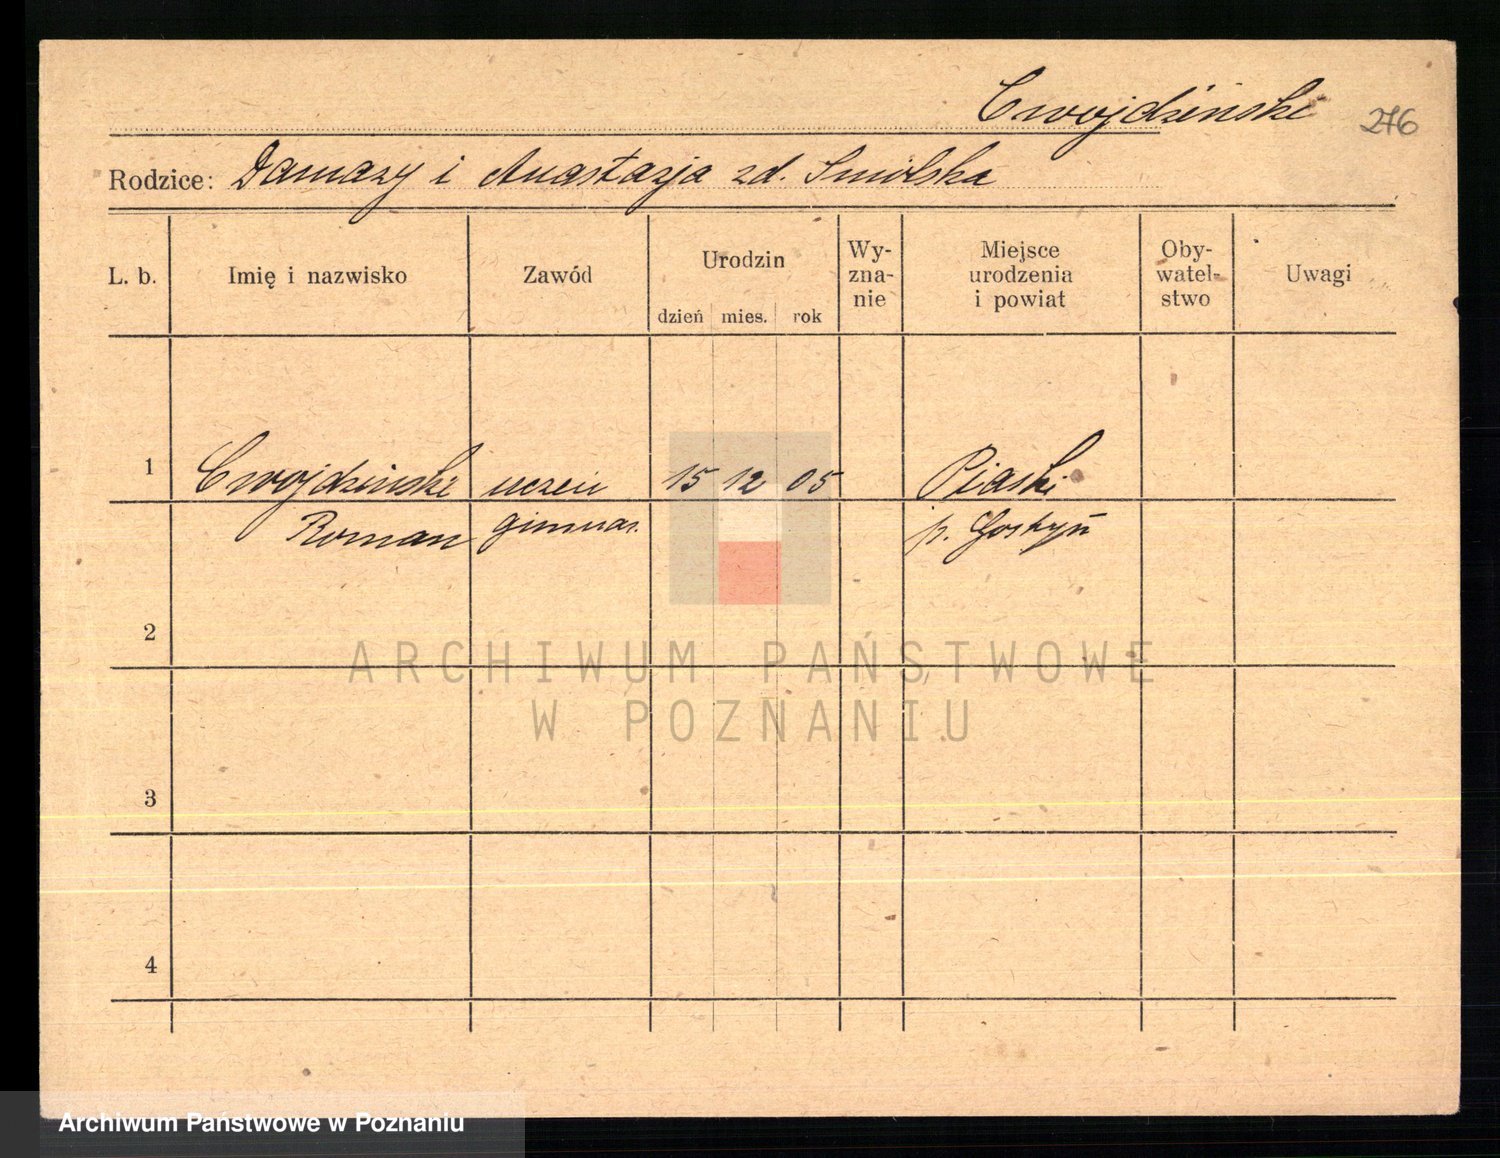 Cwojdziński 276
Rodzice: Damazy i Anastazja zd. Smolska
L. b. Imię i nazwisko Zawód Urodzin dzień mies. rok Wy-zna-nie Miejsce urodzenia i powiat Oby-watel-stwo Uwagi
1 Cwojdziński uczeń 15 12 05 Piaski
Roman gimnaz. p. Gostyń
2
ARCHIWUM PAŃSTWOWE
W POZNANIU
3
4
Archiwum Państwowe w Poznaniu